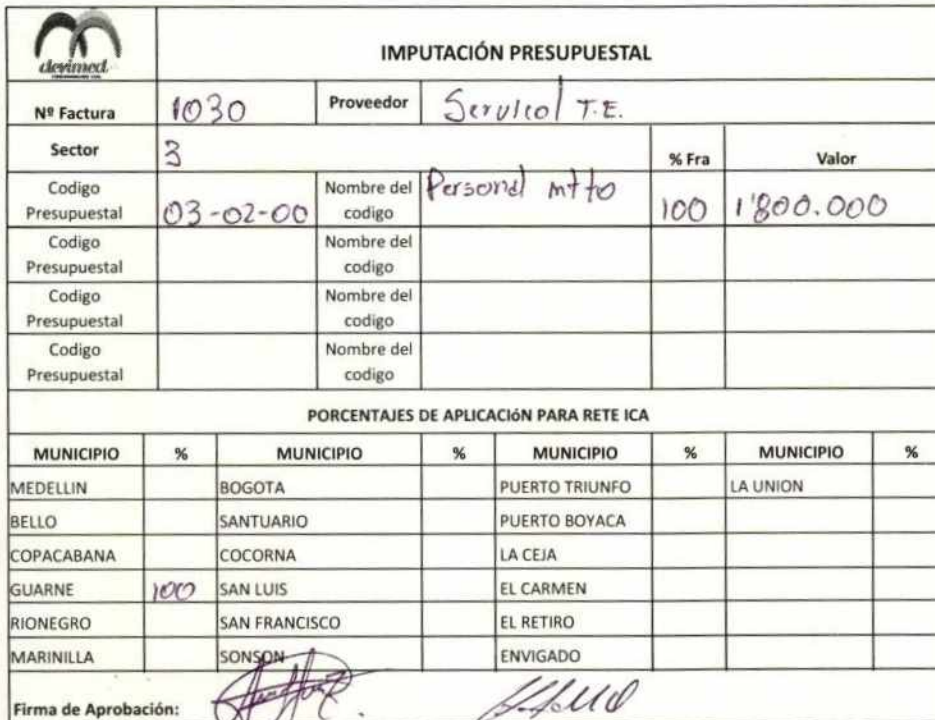 devimed
IMPUTACIÓN PRESUPUESTAL
Nº Factura 1030 Proveedor Servicol T.E.
Sector 3 % Fra Valor
Codigo Presupuestal 03-02-00 Nombre del codigo Personal mtto 100 1'800.000
Codigo Presupuestal Nombre del codigo
Codigo Presupuestal Nombre del codigo
Codigo Presupuestal Nombre del codigo
PORCENTAJES DE APLICACIÓN PARA RETE ICA
MUNICIPIO % MUNICIPIO % MUNICIPIO % MUNICIPIO %
MEDELLIN BOGOTA PUERTO TRIUNFO LA UNION
BELLO SANTUARIO PUERTO BOYACA
COPACABANA COCORNA LA CEJA
GUARNE 100 SAN LUIS EL CARMEN
RIONEGRO SAN FRANCISCO EL RETIRO
MARINILLA SONSON ENVIGADO
Firma de Aprobación: